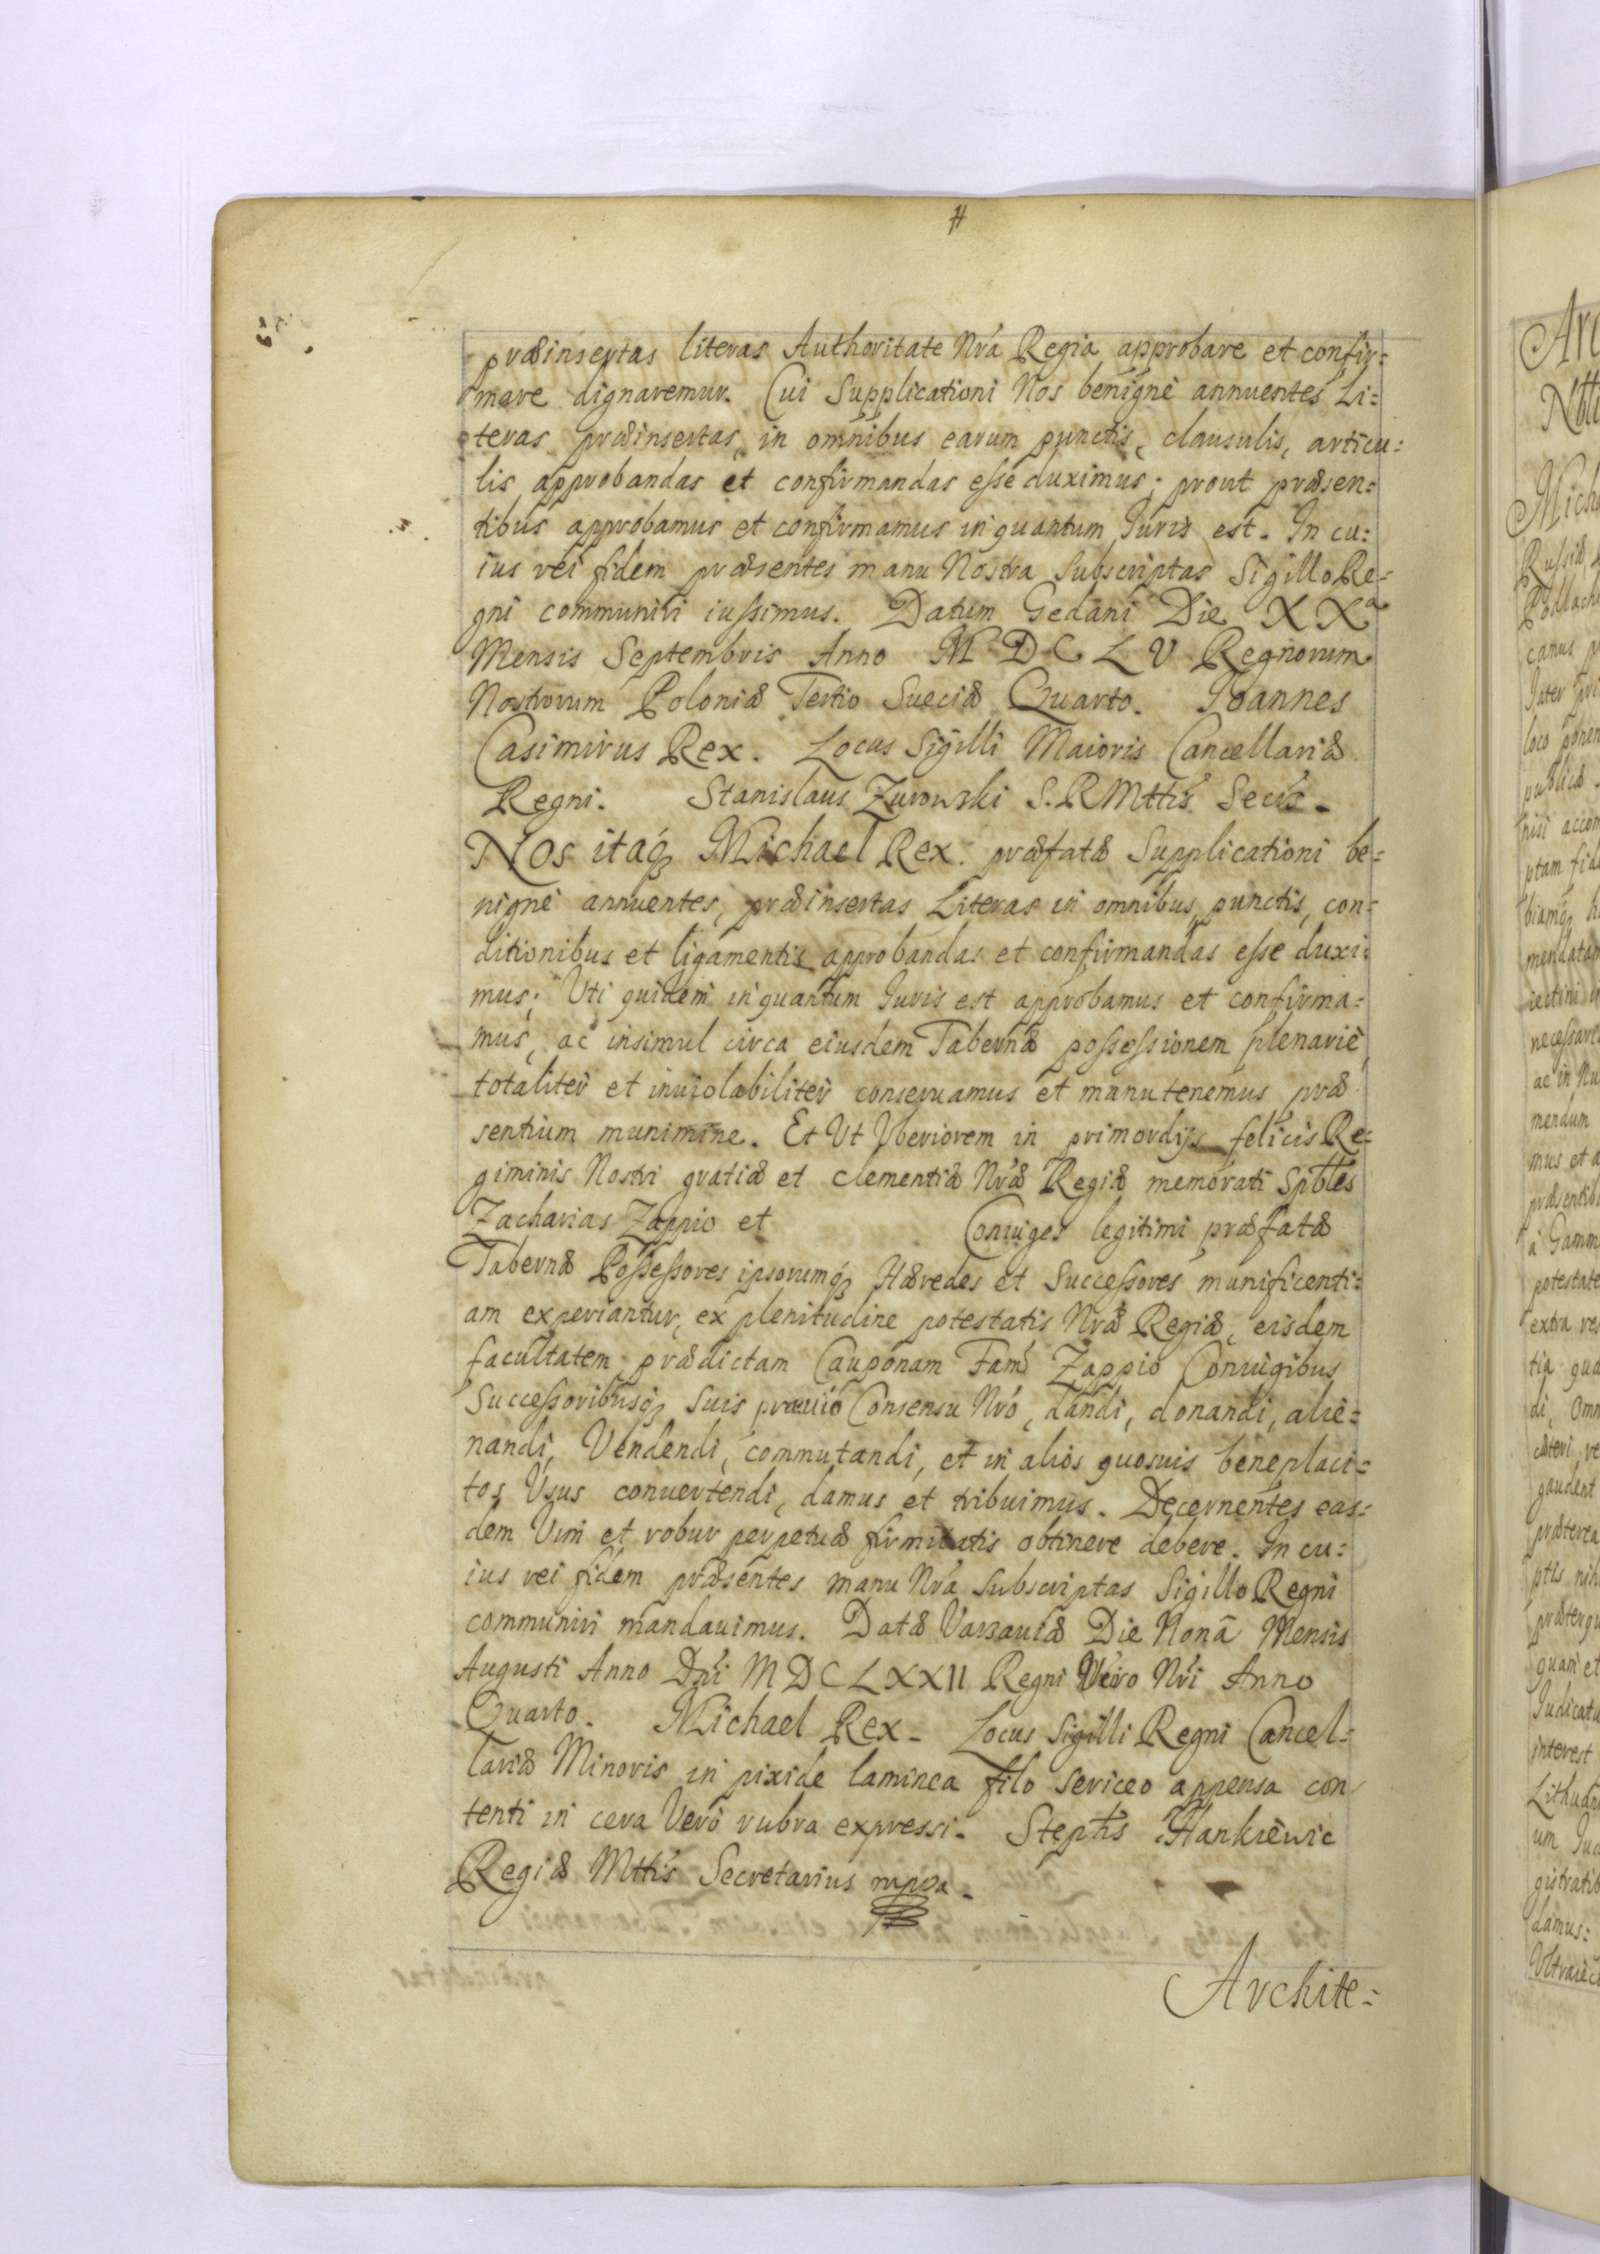 præinsertas literas Authoritate Nrá Regia approbare et confir=
mare dignaremur. Cui Supplicationi Nos benignè annuentes Li=
teras præinsertas, in omnibus earum punctis, clausulis, articu=
lis approbandas et confirmandas esse duximus; prout præsen=
tibus approbamus et confirmamus in quantum Iuris est. In cu=
ius rei fidem præsentes manu Nostra Subscriptas Sigillo Re=
gni communiri iussimus. Datum Gedani Die XXa
Mensis Septembris Anno MDCLV Regnorum
Nostrorum Poloniæ Tertio Sueciæ Quarto. Ioannes
Casimirus Rex. Locus Sigilli Maioris Cancellariæ
Regni. Stanislaus Zurowski S.R Mttis Secrs.
Nos itaq₃ Michael Rex. præfatæ Supplicationi be=
nignè annuentes, præinsertas Literas in omnibus punctis, con=
ditionibus et ligamentis approbandas et confirmandas esse duxi=
mus; Uti quidem in quantum Iuris est approbamus et confirma=
mus, ac insimul circa eiusdem Tabernæ possessionem plenariè,
totaliter et inuiolabiliter conseruamus et manutenemus præ
sentium munimine. Et Ut Vberiorem in primordijs felicis Re=
giminis Nostri gratiæ et clementiæ Nræ Regiæ memorati Spbles
Zacharias Zappio et Coniuges legitimi præfatæ
Tabernæ Possessores ipsorumq₃ Hæredes et Successores munificenti=
am experiantur, ex plenitudine potestatis Nræ Regiæ, eisdem
facultatem prædictam Cauponam Fam: Zappio Coniugibus
Successoribusq₃ suis præuio Consensu Nró, dandi, donandi, alie=
nandi, Vendendi, commutandi, et in alios quosuis beneplaci=
tos Usus conuertendi, damus et tribuimus. Decernentes eas=
dem Vim et robur perpetuæ firmitatis obtinere debere. In cu=
ius rei fidem præsentes manu Nrá subscriptas Sigillo Regni
communiri mandauimus. Datæ Varsauiæ Die Nonâ Mensis
Augusti Anno Dni MDCLXXII Regni Vero Nri Anno
Quarto. Michael Rex. Locus Sigilli Regni Cancel=
lariæ Minoris in pixide laminea filo sericeo appensa con
tenti in cera Vero rubra expressi. Stephs Hankiewic
Regiæ Mttis Secretarius mpra.
Archite=